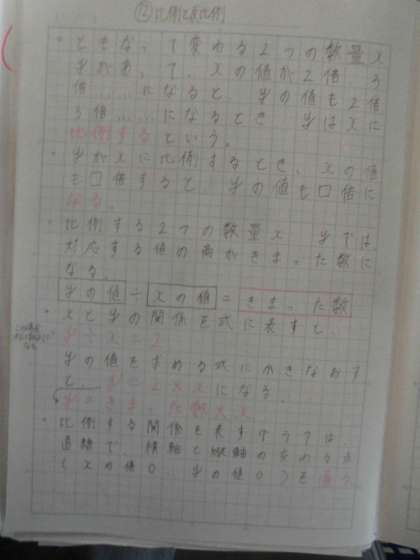 ⑫比例と反比例
・ともなって変わる2つの数量x
yがあって、xの値が2倍、3
倍……になると、yの値も2倍
3倍……になるとき、yはxに
比例するという。
・yがxに比例するとき、xの値
も□倍すると、yの値も□倍に
なる。
・比例する2つの数量x yでは
対応する値の商がきまった数に
なる。
yの値÷xの値=きまった数
・xとyの関係を式に表すと、
y÷x=2
yの値を求める式にかきなおす
と、y=2×xになる。
y=きまった数×x
・比例する関係を表すグラフは、
直線で、横軸と縦軸の交わる点
(xの値0、yの値0)を通る